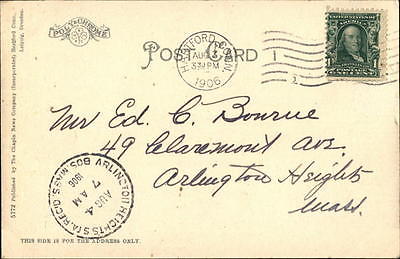 POLYCHROME
POST CARD
HARTFORD, CONN.
AUG 3
3 30 PM
1906
1
UNITED STATES OF AMERICA
POSTAGE
ONE CENT
1
Mr Ed. C. Bourne
49 Claremont ave.
Arlington Heights
Mass.
ARLINGTON HEIGHTS STA. REC'D.
BOSTON, MASS.
AUG 4
7 AM
1906
5772 Published by The Chapin News Company (Incorporated) Hartford Conn.,
Leipzig, Dresden.
THIS SIDE IS FOR THE ADDRESS ONLY.